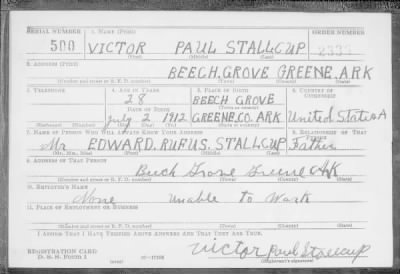 SERIAL NUMBER 1. NAME (Print) ORDER NUMBER
500 VICTOR PAUL STALLCUP 2335
(First) (Middle) (Last)
2. ADDRESS (Print)
BEECH, GROVE GREENE, ARK
(Number and street or R. F. D. number) (Town) (County) (State)
3. TELEPHONE 4. AGE IN YEARS 5. PLACE OF BIRTH 6. COUNTRY OF CITIZENSHIP
28 BEECH GROVE
DATE OF BIRTH (Town or county)
July 2 1912 GREENE, CO. ARK United States A
(Exchange) (Number) (Mo.) (Day) (Yr.) (State or country)
7. NAME OF PERSON WHO WILL ALWAYS KNOW YOUR ADDRESS 8. RELATIONSHIP OF THAT PERSON
Mr. EDWARD. RUFUS. STALLCUP Father
(Mr., Mrs., Miss) (First) (Middle) (Last)
9. ADDRESS OF THAT PERSON
Beech Grove Greene Ark
(Number and street or R. F. D. number) (Town) (County) (State)
10. EMPLOYER'S NAME
None Unable to Work
11. PLACE OF EMPLOYMENT OR BUSINESS
(Number and street or R. F. D. number) (Town) (County) (State)
I AFFIRM THAT I HAVE VERIFIED ABOVE ANSWERS AND THAT THEY ARE TRUE.
REGISTRATION CARD
D. S. S. Form 1 (over) Victor Paul Stallcup
(Registrant's signature)